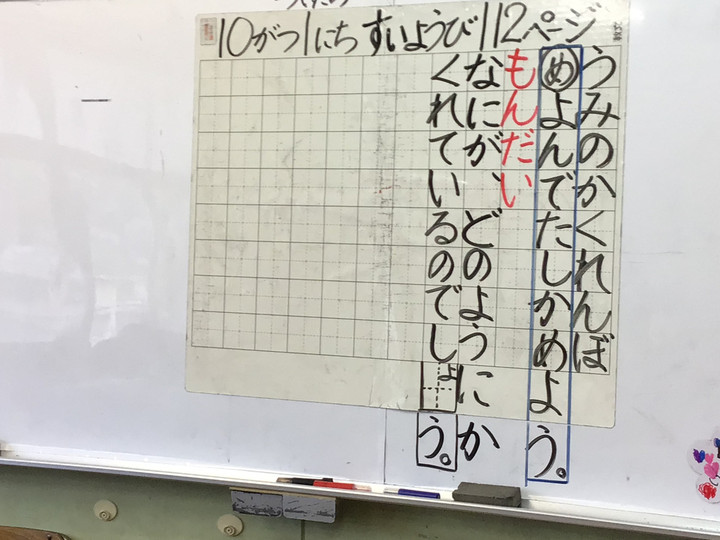 10がつ1にち すいようび 112ページ
うみのかくれんぼ
め よんでたしかめよう。
もんだい
なにが、どのようにか
くれているのでしょう。